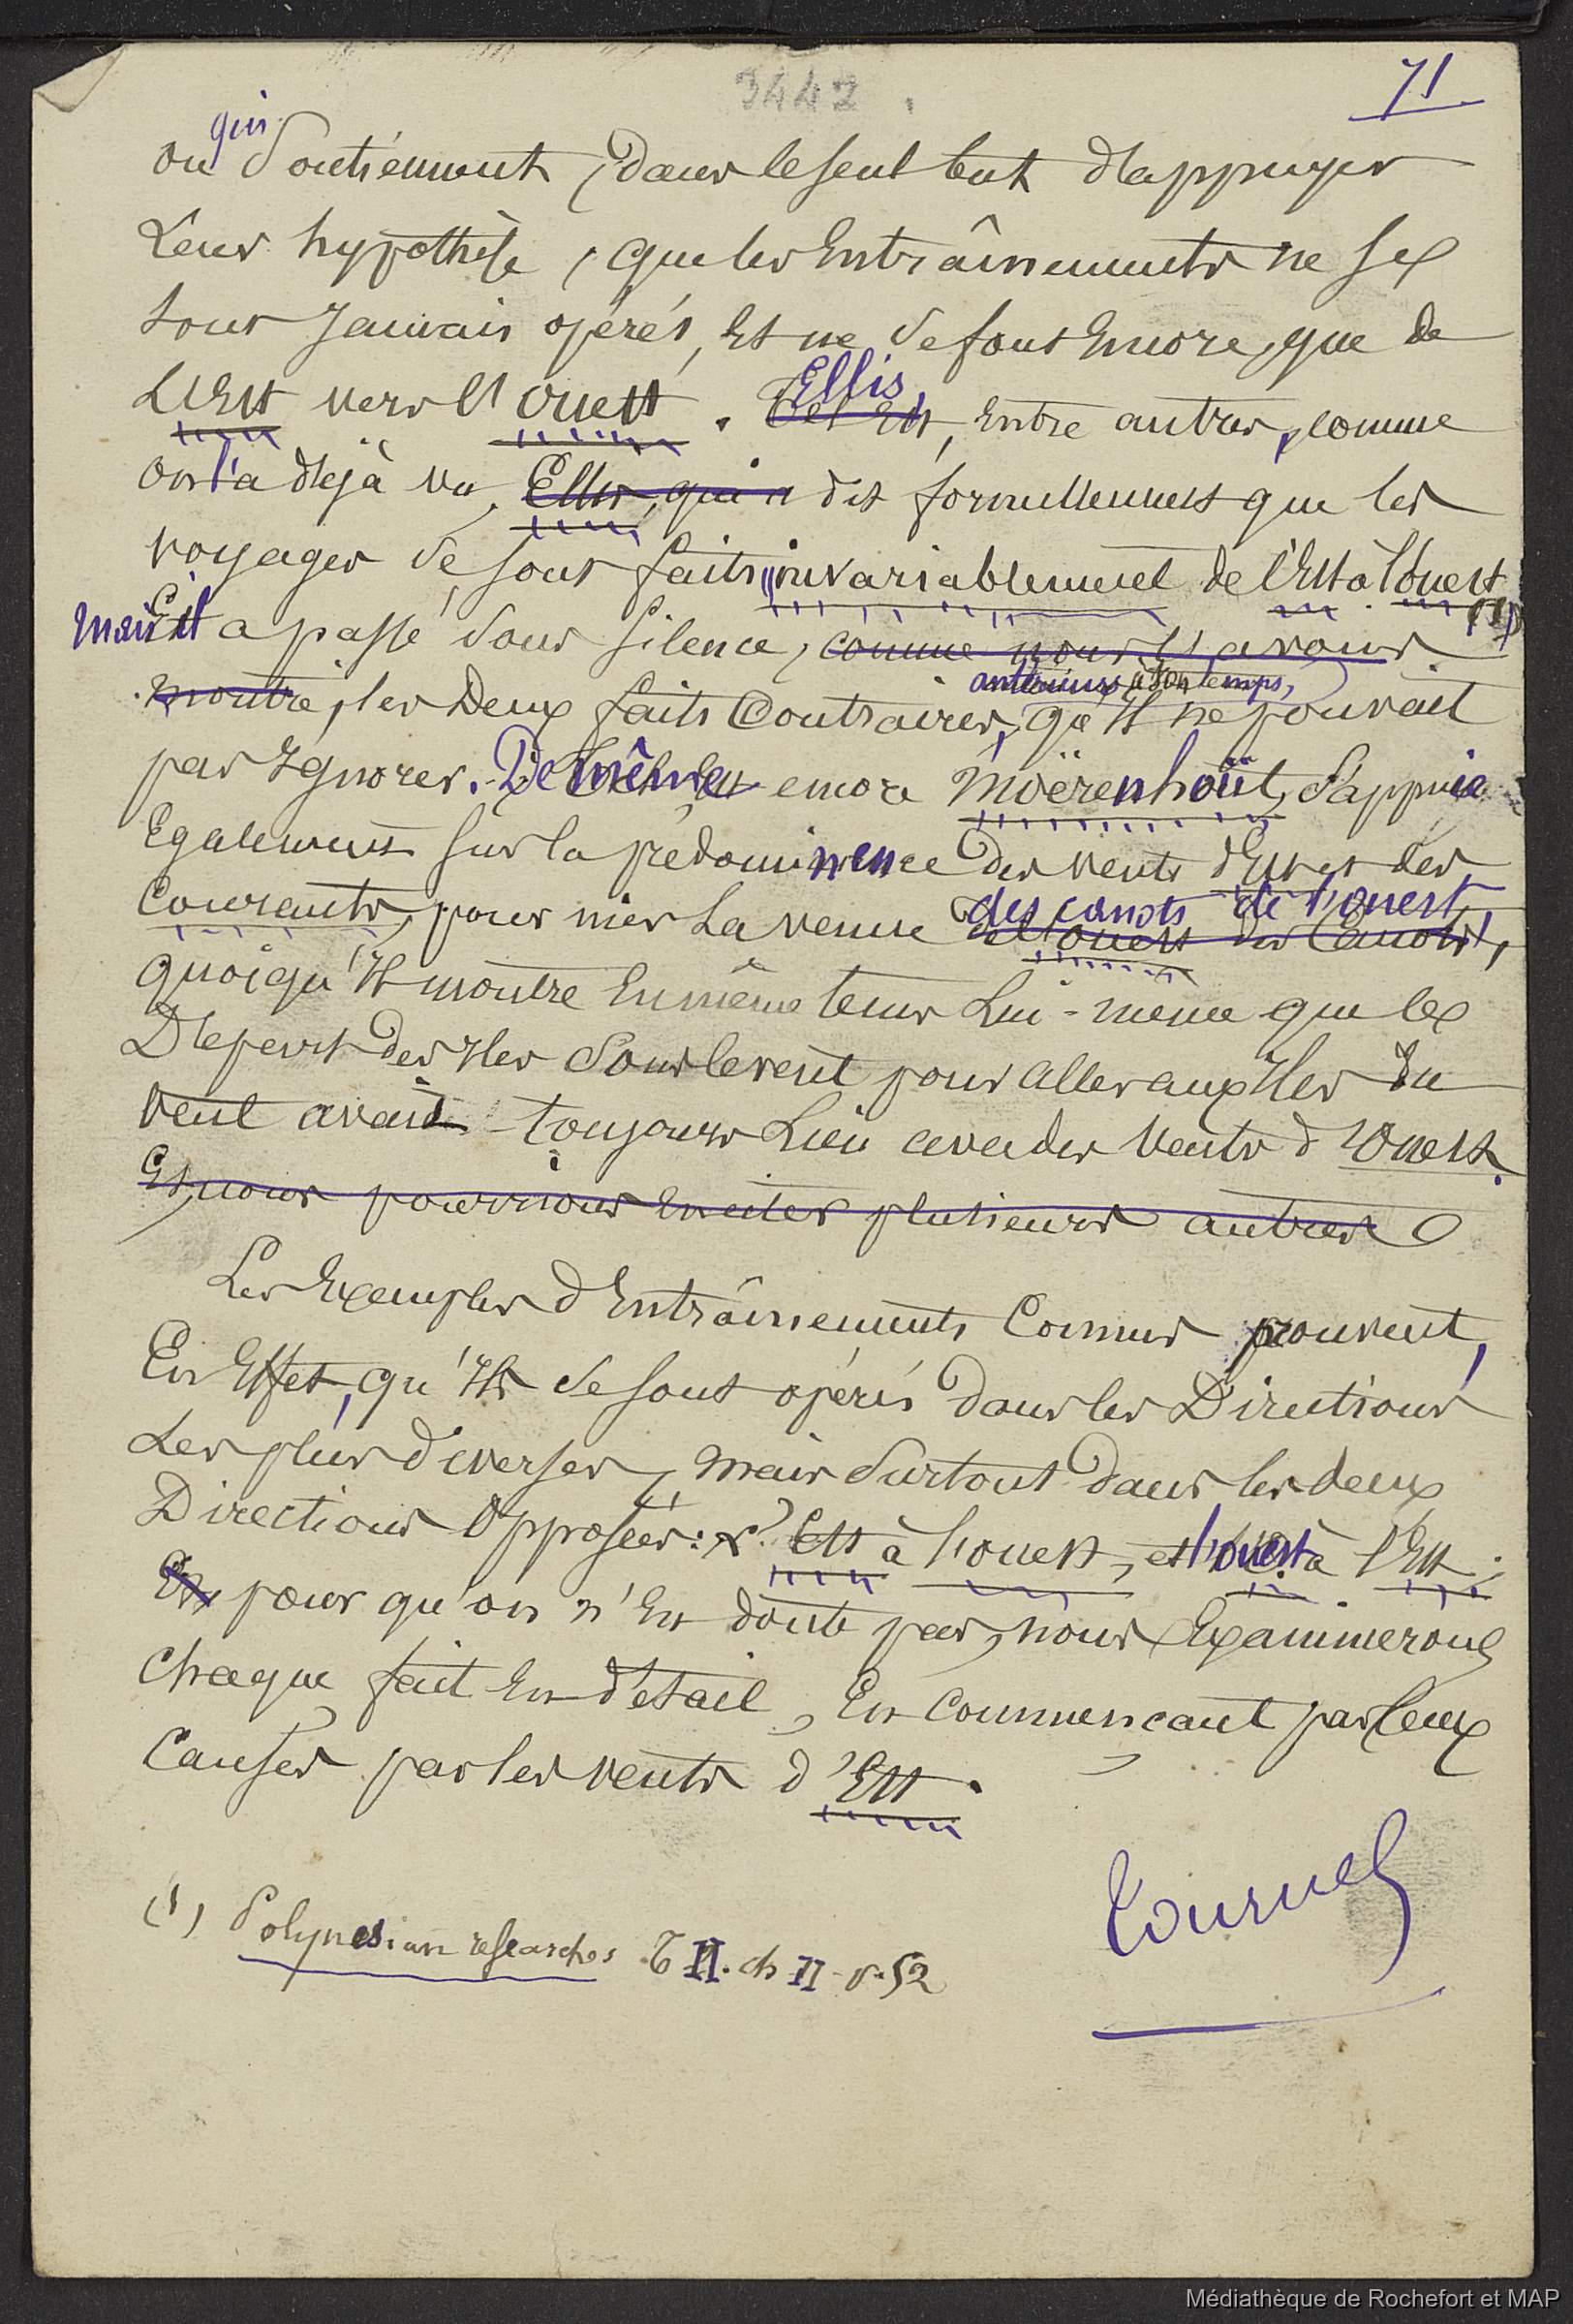 3442
71
ou qui soutiennent, dans le seul but d'appuyer
leur hypothèse, que les Entraînements ne se
sont jamais opérés, et ne se font Encore, que de
l'Est vers l'ouest. Tel Est Ellis, Entre autres, comme
on l'a déjà vu, Ellis, qui a dit formellement que les
voyages se sont faits invariablement de l'Est à l'ouest (1)
Mais il a passé sous silence, comme nous l'avons
montré, les Deux faits Contraires, antérieurs à son temps, qu'il ne pouvait
pas Ignorer. De même encore Moërenhoüt, s'appuie
Egalement sur la prédominence des vents d'Est et des
Courants, pour nier la venue de l'ouest des Canots, des canots de l'ouest,
quoiqu'il montre En même tems Lui-même que les
Départ des Iles Sous le vent pour aller aux Iles du
Vent avait toujours Lieu avec des vents d'Ouest.
Et nous pourrions En citer plusieurs autres
Les Exemples d'Entraînements Connus prouvent,
En Effet, qu'Ils se sont opérés dans les Directions
Les plus diverses, mais surtout dans les deux
Directions Opposées: Est à l'ouest, et l'ouest à l'Est;
Et, pour qu'on n'En doute pas, nous Examinerons
Chaque fait En détail, En Commencant par Ceux
Causés par les vents d'Est.
Tournez
(1) Polynesian researches T II. ch II - p. 52
Médiathèque de Rochefort et MAP